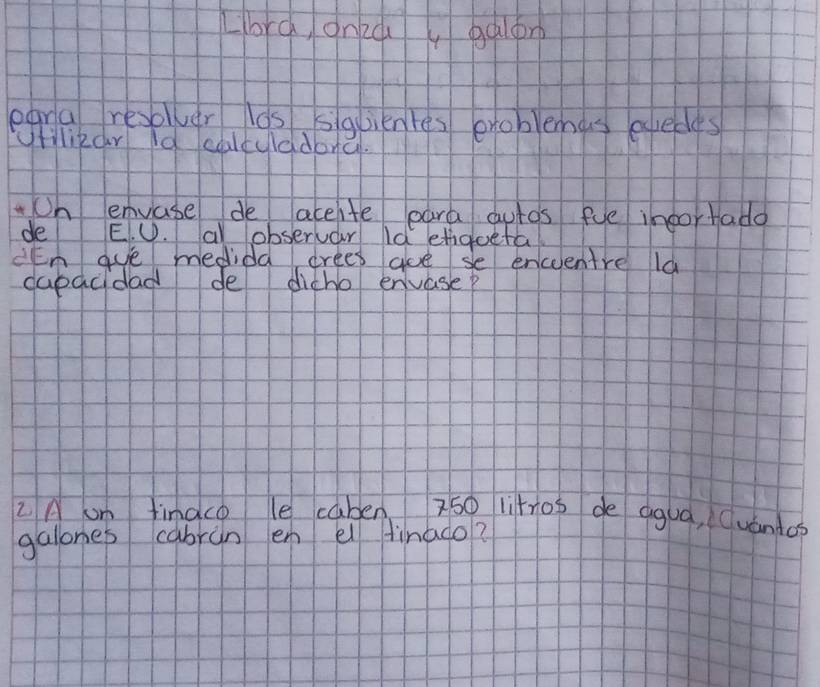 Libra, onza y galón
para resolver los siguientes problemas puedes
utilizar la calculadora.
Un envase de aceite para autos fue inportado
de E.U. al observar la etiqueta.
¿En que medida crees que se encuentre la
capacidad de dicho envase?
2. A un tinaco le caben 750 litros de agua, ¿Cuántos
galones cabrán en el tinaco?